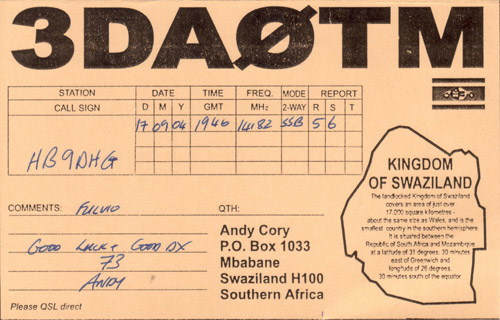 3DAØTM
STATION DATE TIME FREQ. MODE REPORT
CALL SIGN D M Y GMT MHz 2-WAY R S T
17 09 04 1946 14.182 SSB 5 6
HB9DHG
KINGDOM
OF SWAZILAND
The landlocked Kingdom of Swaziland
covers an area of just over
17,000 square kilometres -
about the same size as Wales, and is the
smallest country in the southern hemisphere.
It is situated between the
Republic of South Africa and Mozambique
at a latitude of 31 degrees, 30 minutes
east of Greenwich and
longitude of 26 degrees,
30 minutes south of the equator.
COMMENTS: FULVIO
GOOD LUCK & GOOD DX
73
ANDY
QTH:
Andy Cory
P.O. Box 1033
Mbabane
Swaziland H100
Southern Africa
Please QSL direct